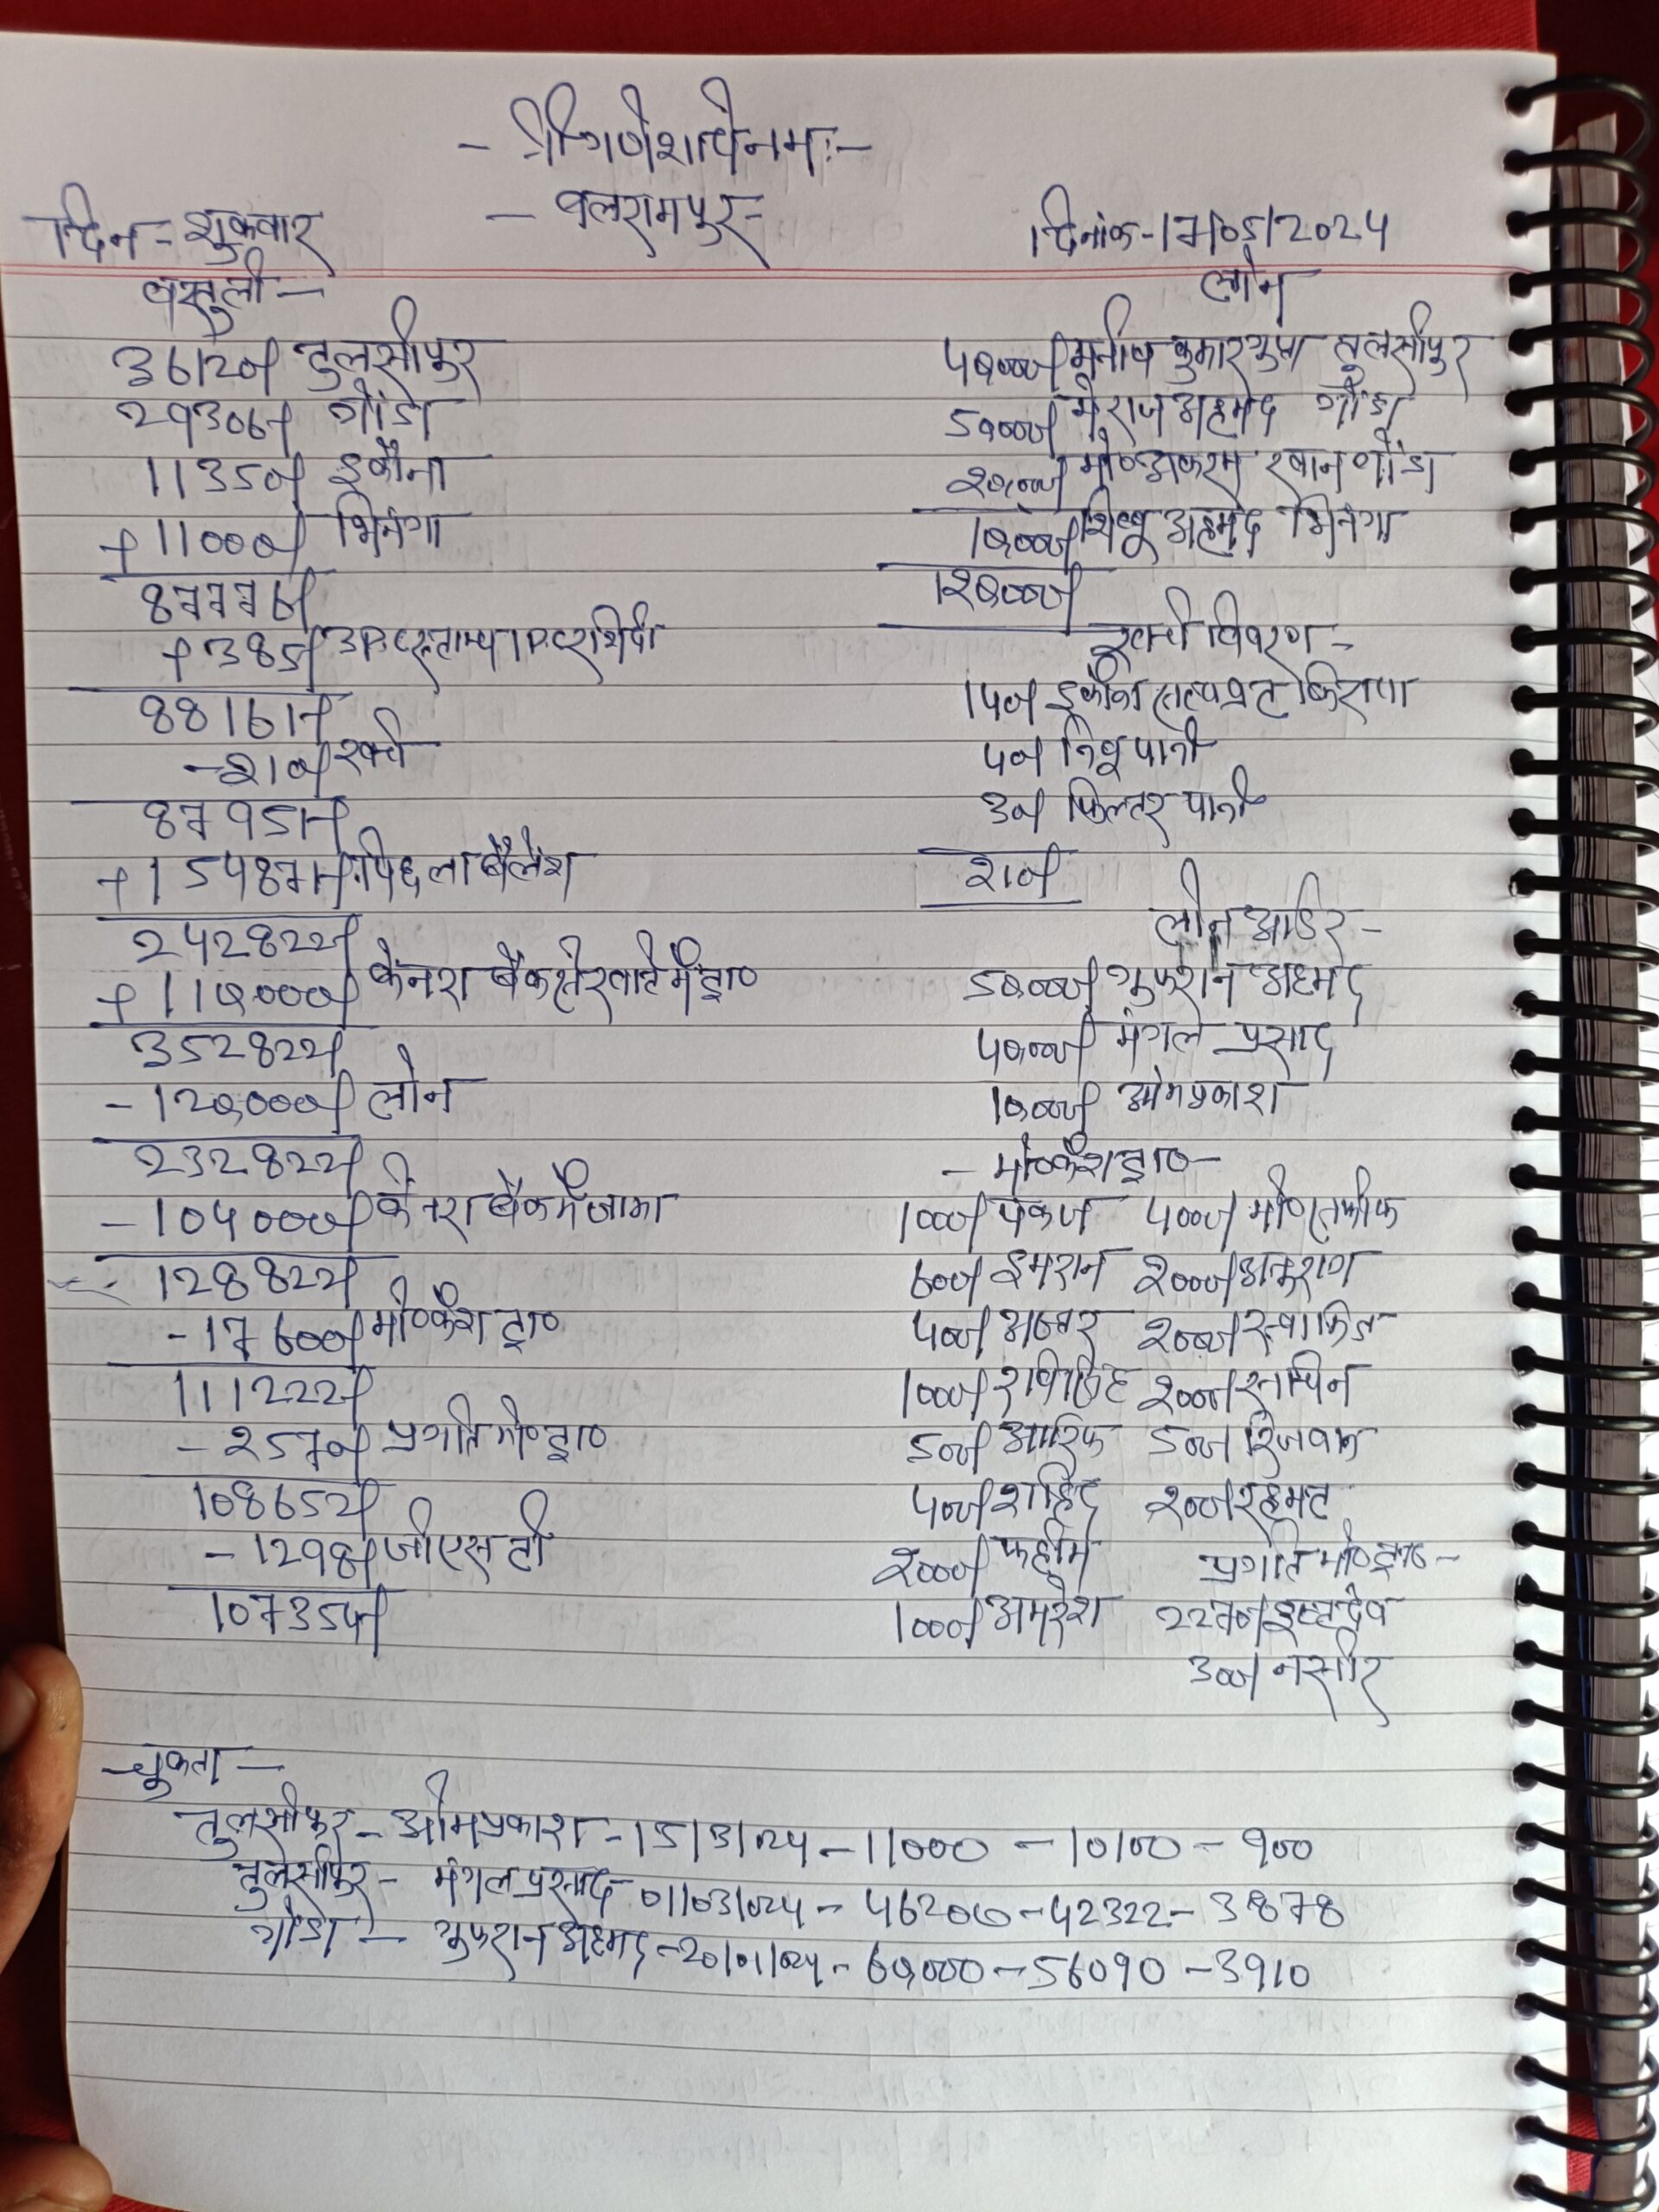 - श्री गणेशाय नमः -
- बलरामपुर -
दिन - शुक्रवार
दिनांक - 17/05/2024
वसूली -
36120/- तुलसीपुर
29306/- गोंडा
11350/- इकौना
+ 11000/- भिनगा
87776/-
+ 385/-
88161/-
- 210/- खर्च
87951/-
+ 154871/- पिछला बैलेंश
242822/-
+ 110000/- केनरा बैंक से खाते में ट्रा०
352822/-
- 120,000/- लोन
232822/-
- 104000/- केनरा बैंक में जमा
128822/-
- 17600/- मो० कैश ट्रा०
111222/-
- 2570/- प्रगति मो० ट्रा०
108652/-
- 1298/- जीएसटी
107354/-
लोन
40,000/- कुमार गुप्ता तुलसीपुर
50,000/- मेराज अहमद गोंडा
20,000/- मो० अकरम खान गोंडा
10,000/- अहमद भिनगा
120,000/-
खर्च विवरण -
140/- इकौना किराया
40/- पानी
30/- फिल्टर पानी
210/-
लोन आर्डर -
50,000/- गुफरान अहमद
40,000/- मंगल प्रसाद
10,000/- ओमप्रकाश
- मो० कैश ट्रा० -
1000/- पंकज 4000/- मो०
600/- इमरान 2000/- अनुराग
400/- 2000/-
1000/- रवि सिंह 2000/- सचिन
500/- आरिफ 500/- रिजवान
400/- शाहिद 200/- रहमत
2000/- फहीम
1000/- अमरेश
प्रगति मो० ट्रा० -
2270/- इन्द्रदेव
300/- नसीर
- चुकता -
तुलसीपुर - ओमप्रकाश - 15/3/024 - 11000 - 10100 - 900
तुलसीपुर - मंगल प्रसाद - 01/03/024 - 46200 - 42322 - 3878
गोंडा - गुफरान अहमद - 20/01/024 - 60,000 - 56090 - 3910